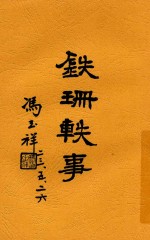 鉄珊軼事
馮玉祥
二三、五、二六